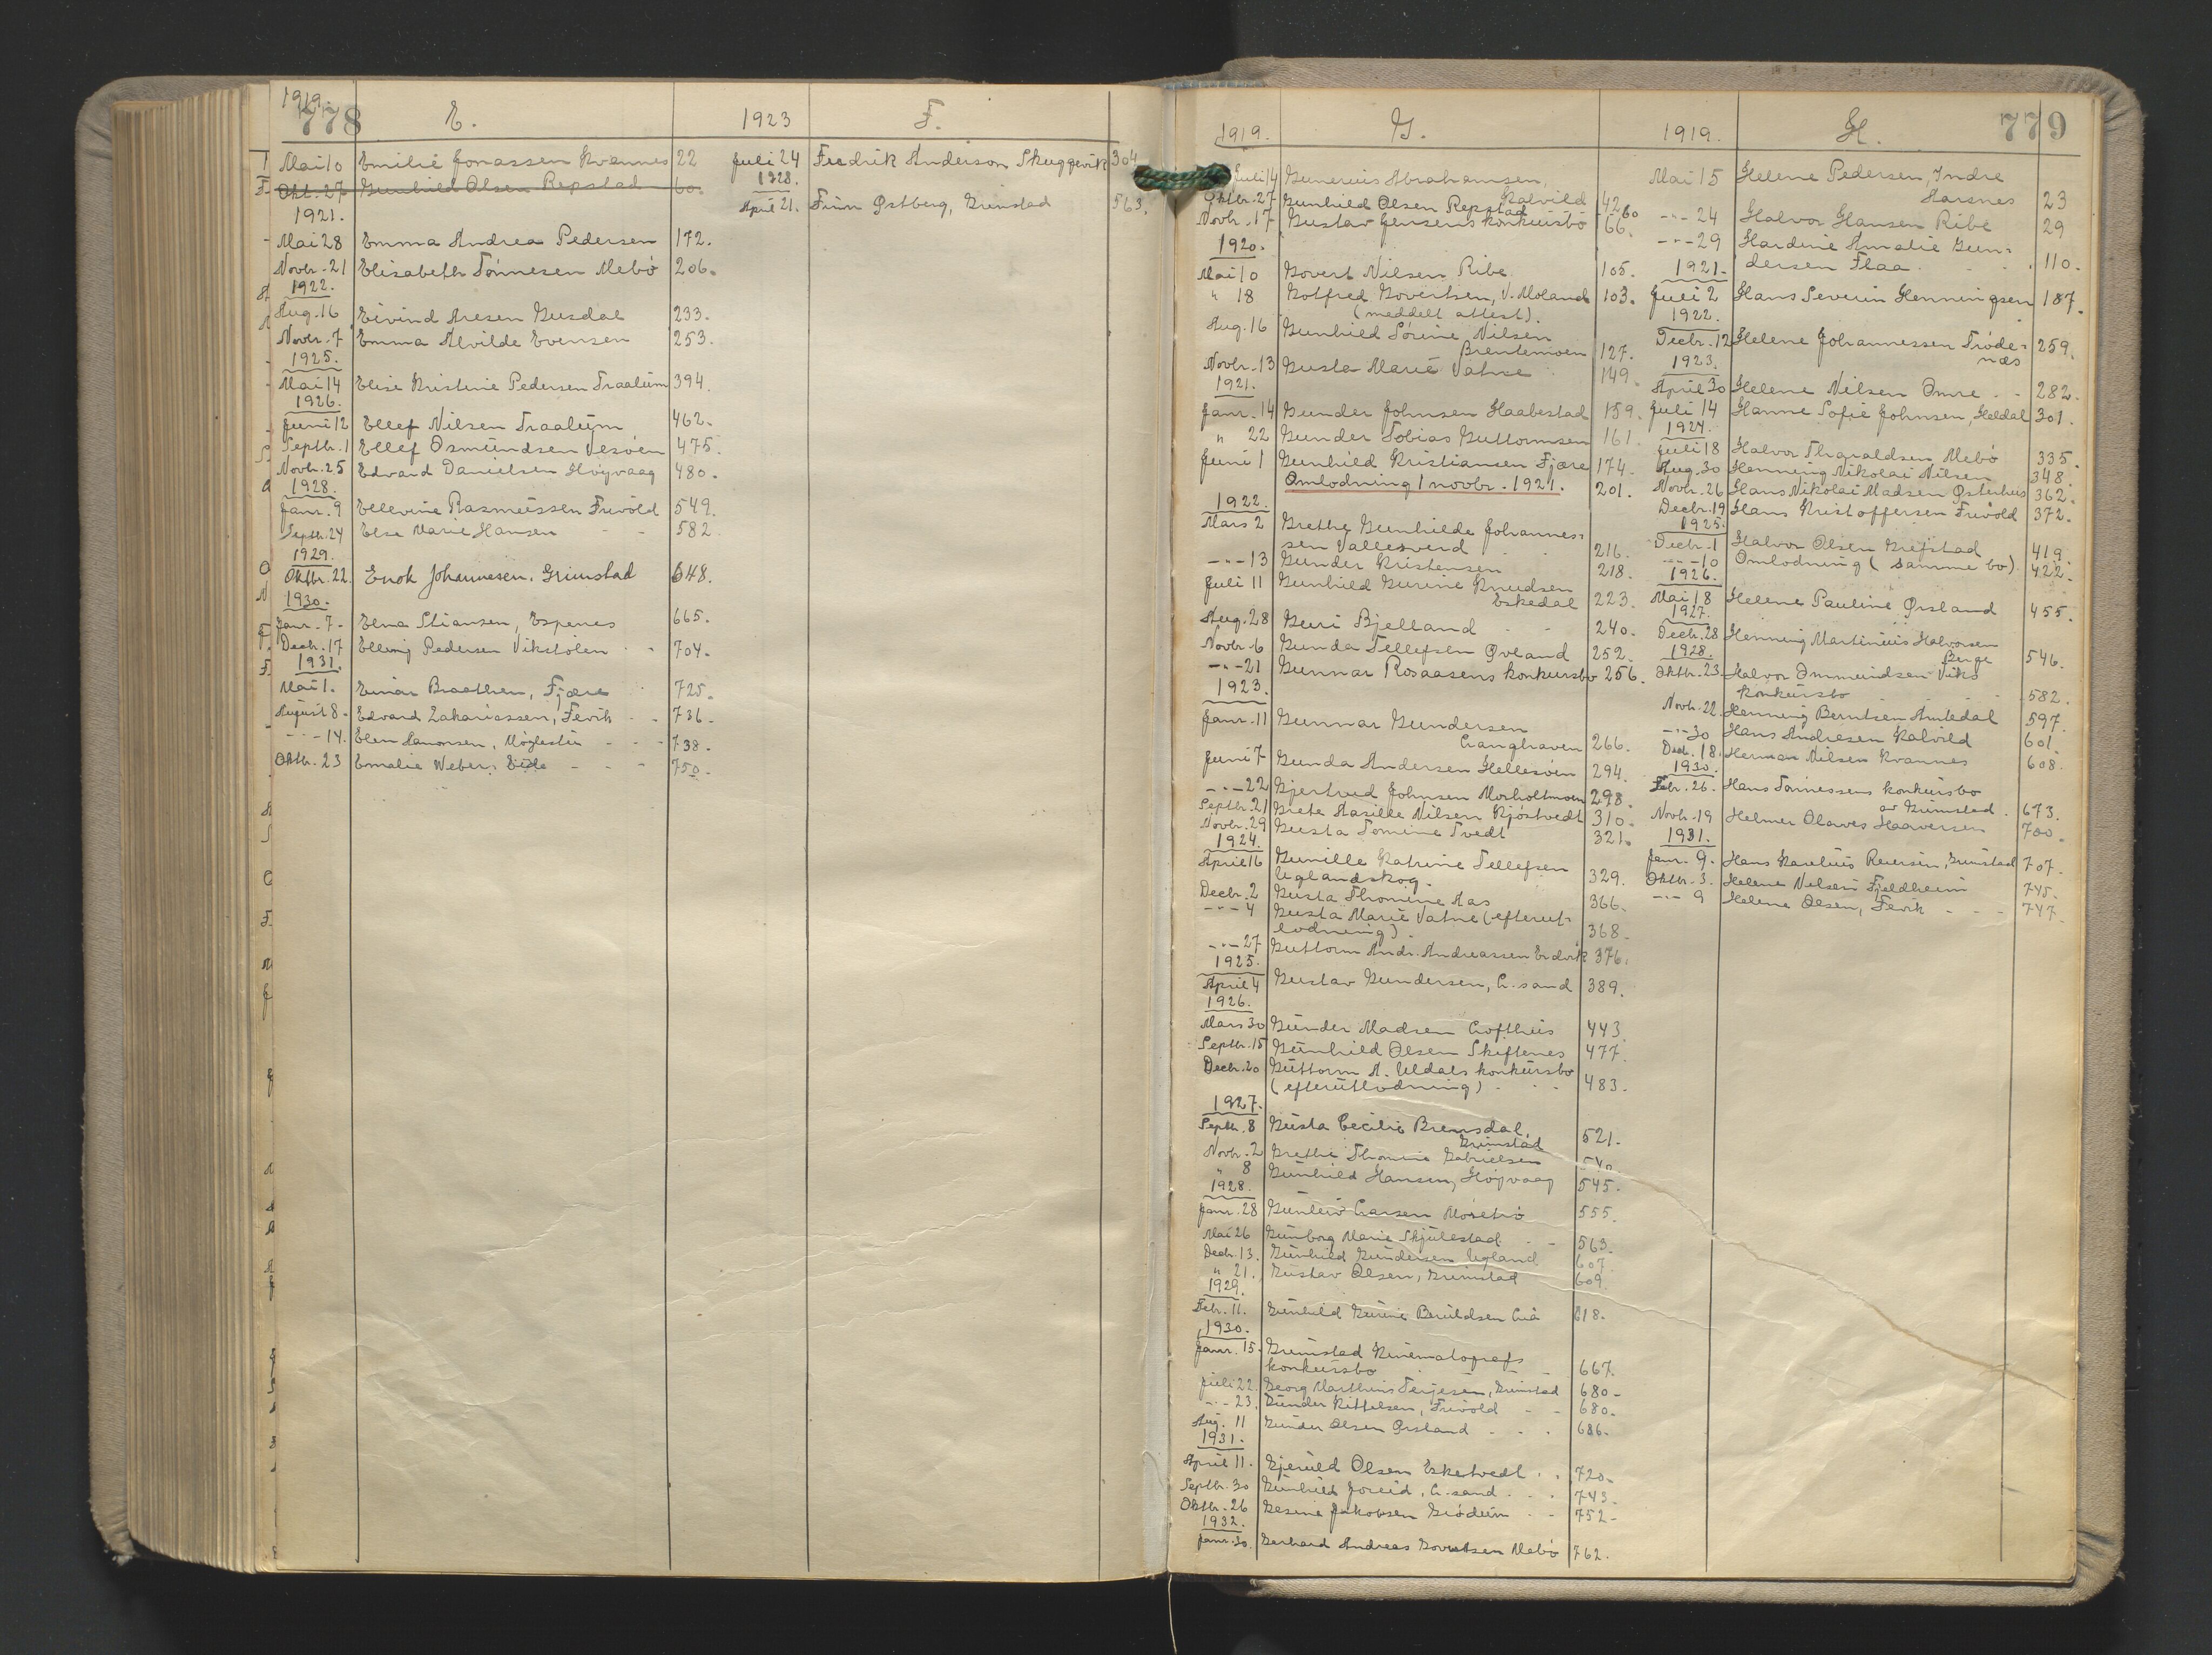 778
1919.
E.
Mai 10 Emilie Jonassen Kvannes 22
Okt. 27 Gunhild Olsen Repstad 60.
1921.
Mai 28 Emma Andrea Pedersen 172.
Novbr. 21 Elisabeth Tönnesen Mebö 206.
1922.
Aug. 16 Eivind Aresen Gusdal 233.
Novbr. 7 Emma Alvilde Evensen 253.
1925.
Mai 14 Elise Kristine Pedersen Traalum 394.
1926.
Juni 12 Ellef Nilsen Traalum 462.
Septbr. 1 Ellef Osmundsen Vesöen 475.
Novbr. 25 Edvard Danielsen Höyvaag 480.
1928.
Janr. 9 Ellevine Rasmussen Frivold 549.
Septbr. 24 Else Marie Hansen - 582
1929.
Oktbr. 22. Enok Johannesen. Grimstad 648.
1930.
Janr. 7 - Elna Stiansen, Espenes 665.
Decbr. 17 Elling Pedersen Vikstölen - - 704.
1931.
Mai 1. Einar Braathen, Fjære 725.
August 8 - Edvard Zakariassen, Fevik - - 736 -
- " - 14. Elen Hamonsen, Moglestu - - - 738 -
Oktbr. 23 Emalie Weber: Eide - - - 750 -
1923
F.
Juli 24 Fredrik Anderson Skuggevik 304
1928.
April 21. Finn Østberg, Grimstad 563.
779
1919.
G.
Juli 14 Gunerius Abrahamsen,
Kalvild 42
Oktbr. 27 Gunhild Olsen Repstad 60
Novbr. 17 Gustav Jensens konkursbo 66.
1920.
Mai 10 Govert Nilsen Ribe 105.
" 18 Gotfred Govertsen, V. Moland 103.
(meddelt attest).
Aug. 16 Gunhild Sörine Nilsen
Brentemoen 127.
Novbr. 13 Gusta Marie Vatne 149.
1921.
Janr. 14 Gunder Johnsen Haabestad 159.
" 22 Gunder Tobias Guttormsen 161.
Juni 1 Gunhild Kristiansen Fjære 174.
Omlodning 1 novbr. 1921. 201.
1922.
Mars 2 Grethe Gunhilde Johannes-
sen Vallesverd 216.
- " - 13 Gunder Kristensen 218.
Juli 11 Gunhild Gurine Knudsen
Eskedal 223.
Aug. 28 Guri Bjelland - - 240.
Novbr. 6 Gunda Tellefsen Øvland 252.
- " - 21 Gunnar Rosaasens konkursbo 256.
1923.
Janr. 11 Gunnar Gundersen
Langhaven 266.
Juni 7 Gunda Andersen Hellesöen 294.
- " - 22 Gjertrud Johnsen Morholtmoen 298.
Septbr. 21 Grete Aasille Nilsen Kjöstvedt 310.
Novbr. 29 Gusta Tomine Tvedt 321.
1924.
April 16 Gunille Katrine Tellefsen
Uglandskog. 329.
Decbr. 2 Gusta Thomine Aas 366.
- " - 4 Gusta Marie Vatne (efterut-
lodning). 368.
- " - 27 Guttorm Andr. Andreassen Erdvik 376.
1925.
April 4 Gustav Gundersen, L.sand 389.
1926.
Mars 30 Gunder Madsen Lofthus 443.
Septbr. 15 Gunhild Olsen Skiftenes 477.
Decbr. 20 Guttorm A. Uldals konkursbo
(efterutlodning) - - - 483.
1927.
Septbr. 8 Gusta Cecilie Bremsdal,
Grimstad 521.
Novbr. 2 Grethe Thomine Gabrielsen 540
" 8 Gunhild Hansen, Höyvaag 545.
1928.
Janr. 28 Gunleiv Larsen Mösebrö 555.
Mai 26 Gunborg Marie Skjulestad - - 563.
Decbr. 13. Gunhild Gundersen Ugland 607.
" 21. Gustav Olsen, Grimstad 609.
1929.
Febr. 11. Gunhild Gurine Beruldsen Lia 618.
1930.
Janr. 15. Grimstad Kinematografs
konkursbo - - - 667.
Juli 22. Georg Marthins Terjesen, Grimstad 680 -
- " - 23. Gunder Kittelsen, Frivold - - 680.
Aug. 11 Gunder Olsen Ørsland - - - 686.
1931.
April 11. Gjeruld Olsen Eskestvedt - - 720.
Septbr. 30 Gunhild Joreid, L.sand - - - 743.
Oktbr. 26 Gesine Jakobsen Grödum - - 752 -
1932.
Janr. 30. Gerhard Andreas Govertsen Mebö 762.
1919.
H.
Mai 15 Helene Pedersen, Indre
Aarsnes 23
- " - 24 Halvor Hansen Ribe 29
- " - 29 Hardine Amalie Gun-
dersen Flaa. - - . 110.
1921.
Juli 2 Hans Severin Henningsen 187.
1922.
Decbr. 12 Helene Johannessen Tröde-
næs 259.
1923.
April 30 Helene Nilsen Omre - - 282.
Juli 14 Hanne Sofie Johnsen, Heldal 301.
1924.
Juli 18 Halvor Thoraldsen Mebö 335.
Aug. 30 Henning Nikolai Nilsen 348.
Novbr. 26 Hans Nikolai Madsen Østerhus 362.
Decbr. 19 Hans Kristoffersen Frivold 372.
1925.
Decbr. 1 Halvor Olsen Grefstad 419.
- " - 10 Omlodning (samme bo) 422.
1926.
Mai 18 Helene Pauline Ørsland 455.
1927.
Decbr. 28 Henning Martinius Halvorsen
Berge 546.
1928.
Oktbr. 23. Halvor Ommundsen Viks
konkursbo - - 582.
Novbr. 22. Henning Berntsen Amtedal 597.
- " - 30 Hans Andresen Kalvild 601.
Decbr. 18. Herman Nilsen Kvannes 608.
1930.
Febr. 26. Hans Tönnessens konkursbo
av Grimstad. 673.
Novbr. 19 Helmer Olaves Haaversen 700.
1931.
Janr. 9. Hans Karelius Reiersen, Grimstad 707.
Oktbr. 3. Helene Nilsen Fjeldheim 745.
- " - 9 Helene Olsen, Fevik - - - 747.